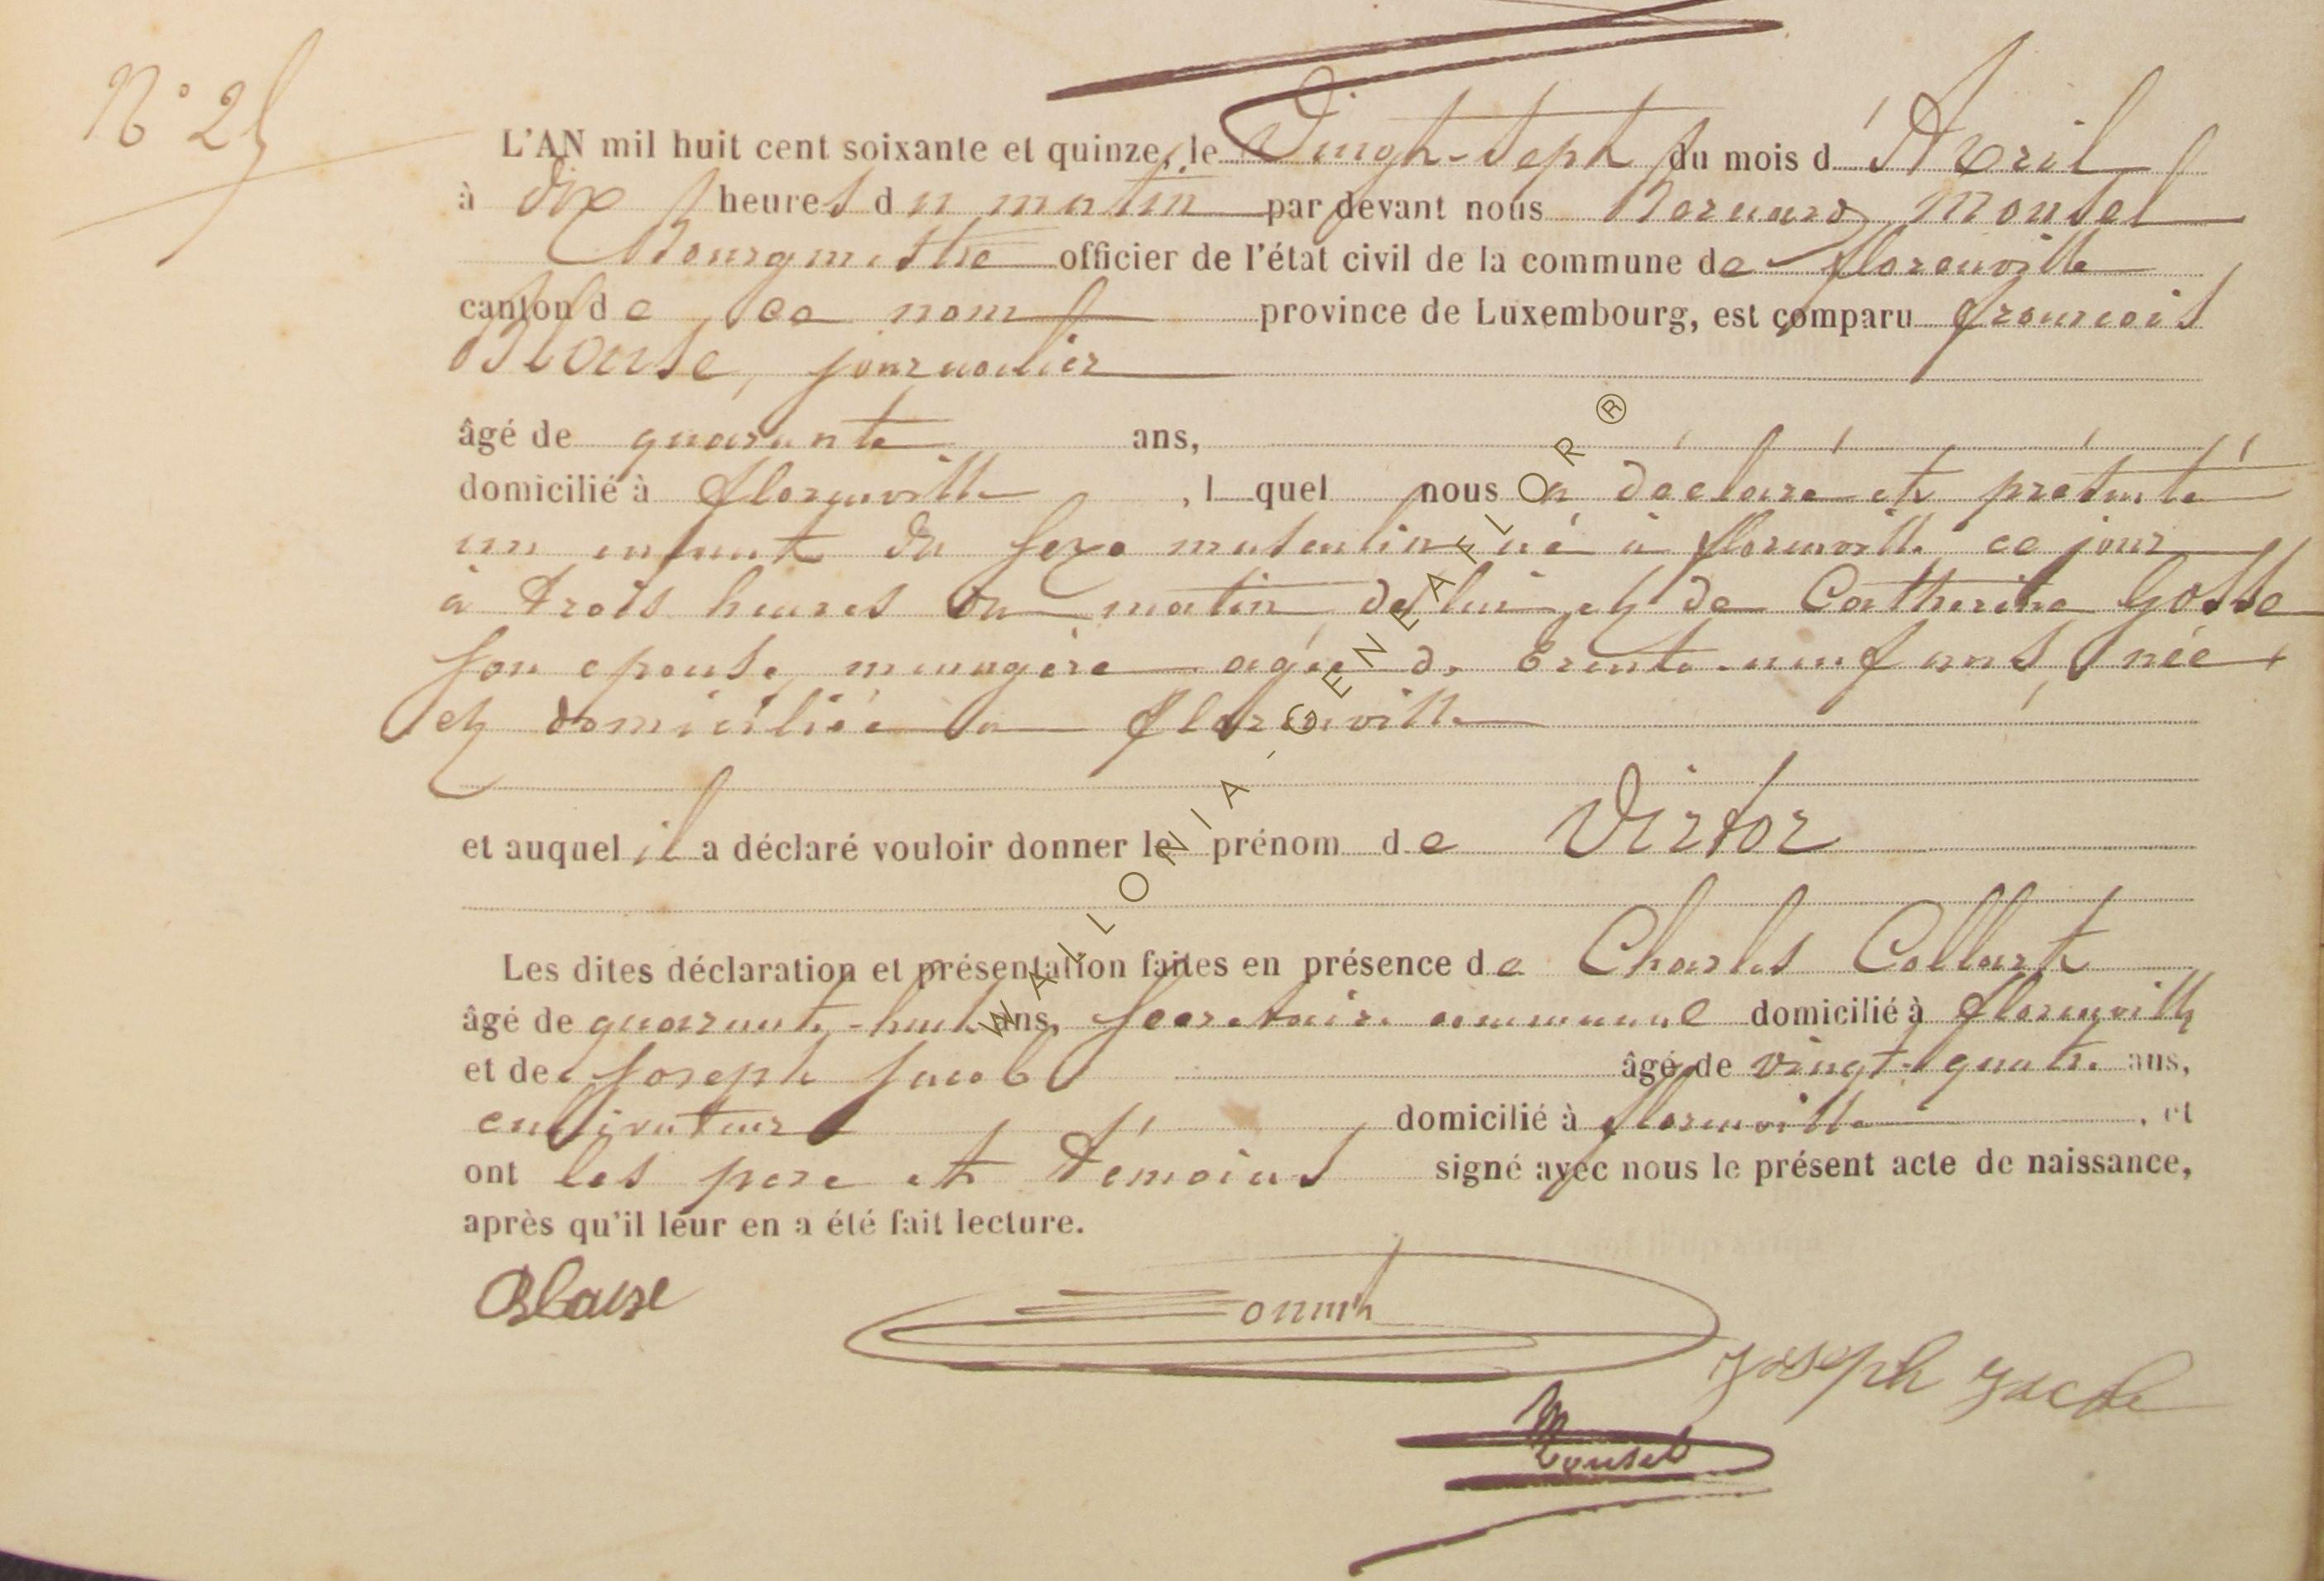 N° 25
L'AN mil huit cent soixante et quinze, le Vingt-Sept du mois d'Avril
à dix heures du matin par devant nous Bernard Mousel
Bourgmestre officier de l'état civil de la commune de florenville
canton de ce nom province de Luxembourg, est comparu françois
Blaise, journalier
âgé de quarante ans,
domicilié à florenville, lquel nous a declaré et presenté
un enfant du sexe masculin né à florenville ce jour
à trois heures du matin de lui et de Catherine Gosse
son epouse, menagère agée de trente-neuf ans, née
et domiciliée à florenville
et auquel il a déclaré vouloir donner le prénom de Victor
Les dites déclaration et présentation faites en présence de Charles Collart
âgé de quarante-huit ans, secretaire communal domicilié à florenville
et de Joseph Jacob âgé de vingt-quatre ans,
cultivateur domicilié à florenville, et
ont les pere et témoins signé avec nous le présent acte de naissance,
après qu'il leur en a été fait lecture.
Blaise
Joseph Jacob
Mousel
WALLONIA-GENEAFLOR ®